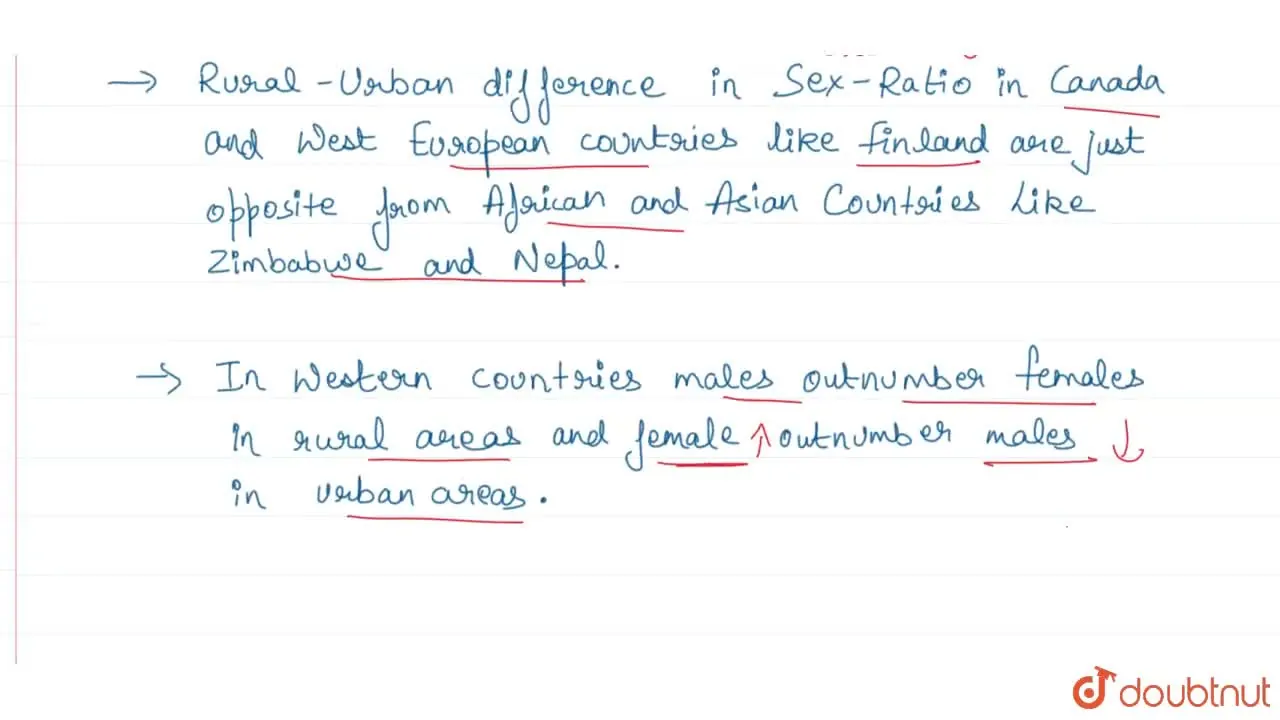 → Rural-Urban difference in Sex-Ratio in Canada
and West European countries like finland are just
opposite from African and Asian Countries Like
Zimbabwe and Nepal.
→ In Western countries males outnumber females
in rural areas and female ↑ outnumber males ↓
in urban areas.
doubtnut